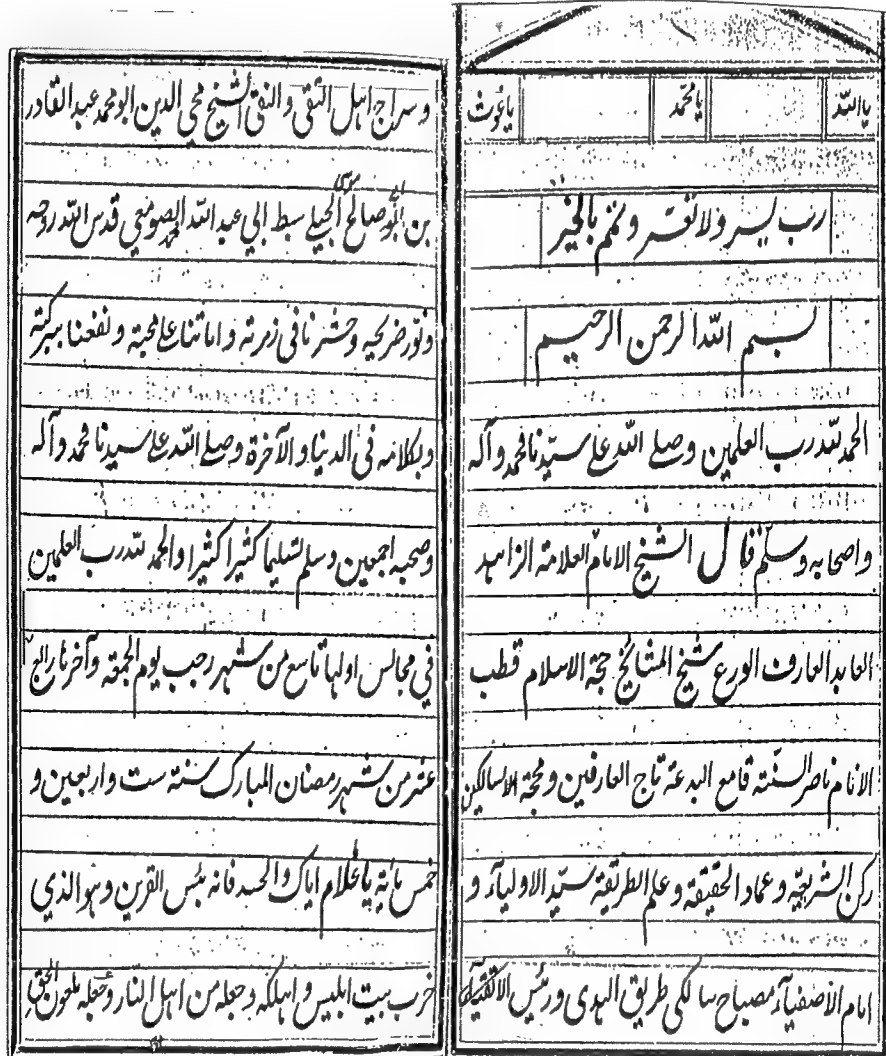 يا الله يا محمد يا غوث
رب يسر ولا تعسر وتمم بالخير
بسم الله الرحمن الرحيم
الحمد لله رب العلمين وصلے الله علے سيدنا محمد وآله
واصحابه وسلم قال الشيخ الامام العلامة الزاهد
العابد العارف الورع شيخ المشائخ حجة الاسلام قطب
الانام ناصر السنة قامع البدعة تاج العارفين ومحجة السالكين
ركن الشريعة وعماد الحقيقة وعلم الطريقة سيد الاولياء و
امام الاصفياء مصباح سالكي طريق الهدى ورئيس الاتقياء
وسراج اهل التقى والنقى الشيخ محي الدين ابو محمد عبد القادر
بن ابو صالح الجيلے سبط ابي عبد الله الصومعي قدس الله روحه
ونور ضريحه وحشرنا في زمرته واماتنا علے محبته ونفعنا ببركته
وبكلامه في الدنيا والآخرة وصلے الله علے سيدنا محمد وآله
وصحبه اجمعين وسلم تسليما كثيرا كثيرا والحمد لله رب العلمين
في مجالس اولها تاسع من شهر رجب يوم الجمعة وآخرها رابع
عشر من شهر رمضان المبارك سنة ست واربعين و
خمس مائة يا غلام اياك والحسد فانه بئس القرين وهو الذي
خرب بيت ابليس واهلكه وجعله من اهل النار وجعله ملعون الحق